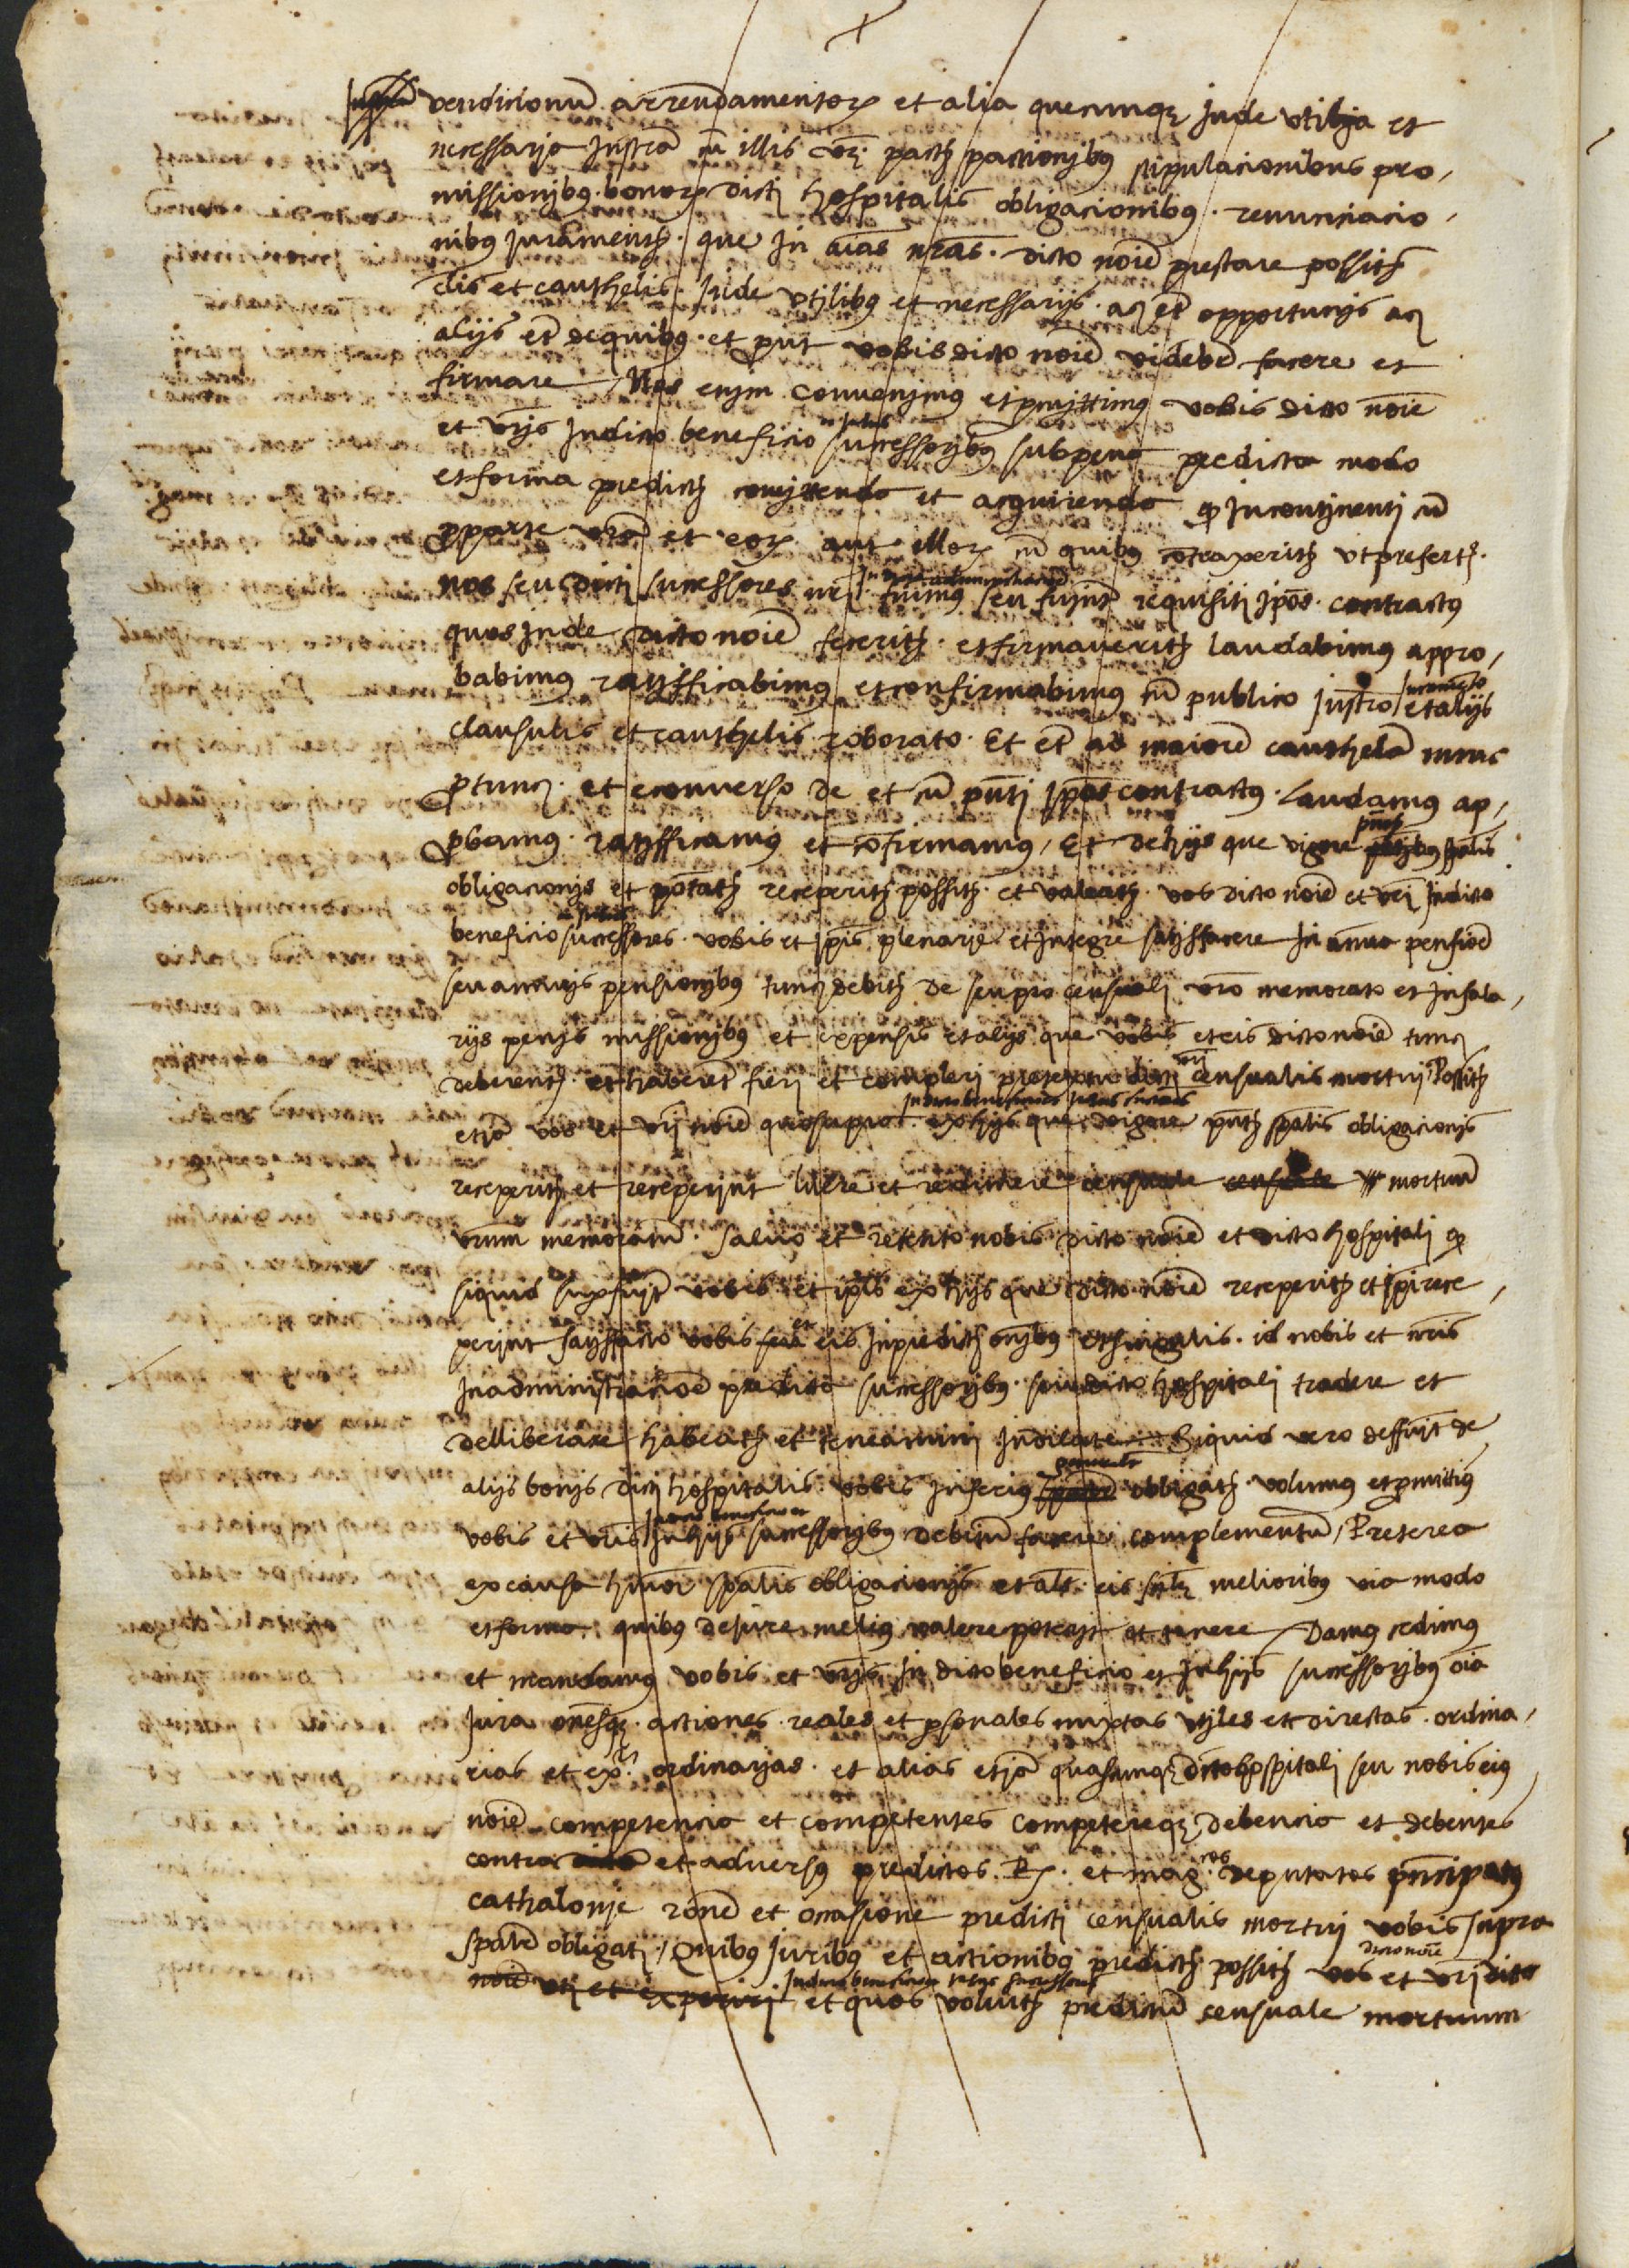 vendicionu arrendamentor et alia quecumq Inde utilia et
necessaria Instra cu illis pactis pactionibus stipulacionibus pro-
missionibus bonor dicti hospitalis obligacionibus renunciacio-
nibus Juramentis que In aias nras dicto noie prestare possitis
et cauthelis Inde utilibus et necessariis ac et opportunis ac
aliis et de quibus et prout vobis dicto noie videbr facere et
firmare Nos enim convenimus et promittimus vobis dicto noie
et vris In dicto beneficio successoribus sub pena predicta modo
et forma predictis comittenda et acquirenda q Incontinenti cu
pro parte vra et eor aut illor cu quibus contraxeritis ut prefertr
nos seu dicti successores nri fuimus seu fuint requisiti Ipos contractus
quos Inde dicto noie feceritis et firmaveritis laudabimus appro-
babimus ratifficabimus et confirmabimus cu publico Instro et aliis
clausulis et cauthelis roborato Et et ad maiore cauthela nunc
pro tunc et econverso de et cu pnti Ipos contractus laudamus ap-
probamus ratifficamus et confirmamus Et de hiis que vigore
obligacionis et potatis receperitis possitis et valeatis vos dicto noie et vri In dicto
beneficio successores vobis et Ipis plenarie et Integre satisfacere In annua pensione
seu annuis pensionibus tunc debitis de seu pro censuali vro memorato et In sala-
riis penis missionibus et expensis et aliis que vobis et eis dicto noie tunc
deberentr et haberet fieri et compleri pretextu dicti vri censualis mortui Possitis
etia vos et vri noie quo supra ex hiis que vigore pntis spalis obligacionis
receperitis et receperint luere et redimere censuale mortuu
vrum memoratu salvo et retento nobis dicto noie et dicto hospitali q
siquid supfuit vobis et ipis ex hiis que dicto noie receperitis et Ipi rece-
perint satisfacto vobis et eis In predictis omibus et singulis id nobis et nris
In administracione predicta successoribus seu dicto hospitali tradere et
delliberare habeatis et teneamini Indilate Siquid vero deffuit de
aliis bonis dicti hospitalis vobis Inferius obligatis volumus et promittimus
vobis et vris In hiis successoribus debitu facere complementu Preterea
ex causa hmoi spalis obligacionis et als eis melioribus via modo
et forma quibus de Jure melius valere poterit et tenere Damus cedimus
et mandamus vobis et vris In dicto beneficio et In hiis successoribus oia
Jura omesq actiones reales et psonales mixtas utiles et directas ordina-
rias et ext ordinarias et alias etia quascumq dicto hospitali seu nobis eius
noie competencia et competentes competereq debencia et debentes
contra et adversus predictos R et mag cos deputatos principatus
cathalonie rone et occasione predicti censualis mortui vobis supra
spali obligati Quibus Juribus et actionibus predictis possitis vos et vri dicto
noie uti et experiri et quos volueritis predictu censuale mortuum